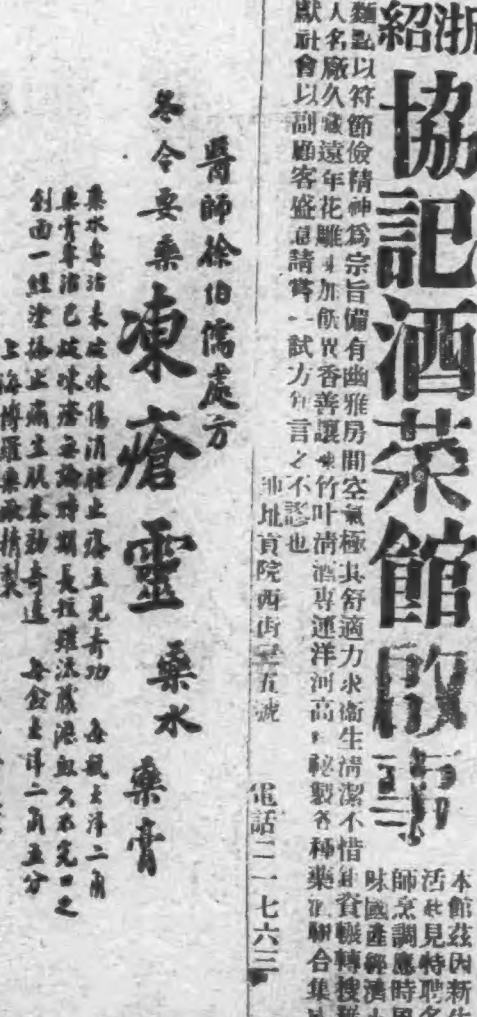 浙
紹
協記酒菜館啟事
本館茲因新生
活
見特聘名
師烹調應時
味國產經濟
麵點以符節儉精神為宗旨備有幽雅房間空氣極其舒適力求衛生清潔不惜
資輾轉搜羅
人名廠久藏遠年花雕
加飯異香善讓
竹叶清酒專運洋河高
秘製各種藥酒聯合集
獻社會以副顧客盛意請嘗一試方知言之不謬也
地址貢院西街
五號
電話二一七六三
醫師徐伯儒處方
冬令要藥
凍瘡靈
藥水
藥膏
藥水專治未破凍傷消腫止癢立見奇功
每瓶大洋二角
藥膏專治已破凍瘡無論時期長短雖流膿浸血久不完口之
創面一經塗搽止痛生肌奏効奇速
每盒大洋二角五分
上海博羅藥廠精製